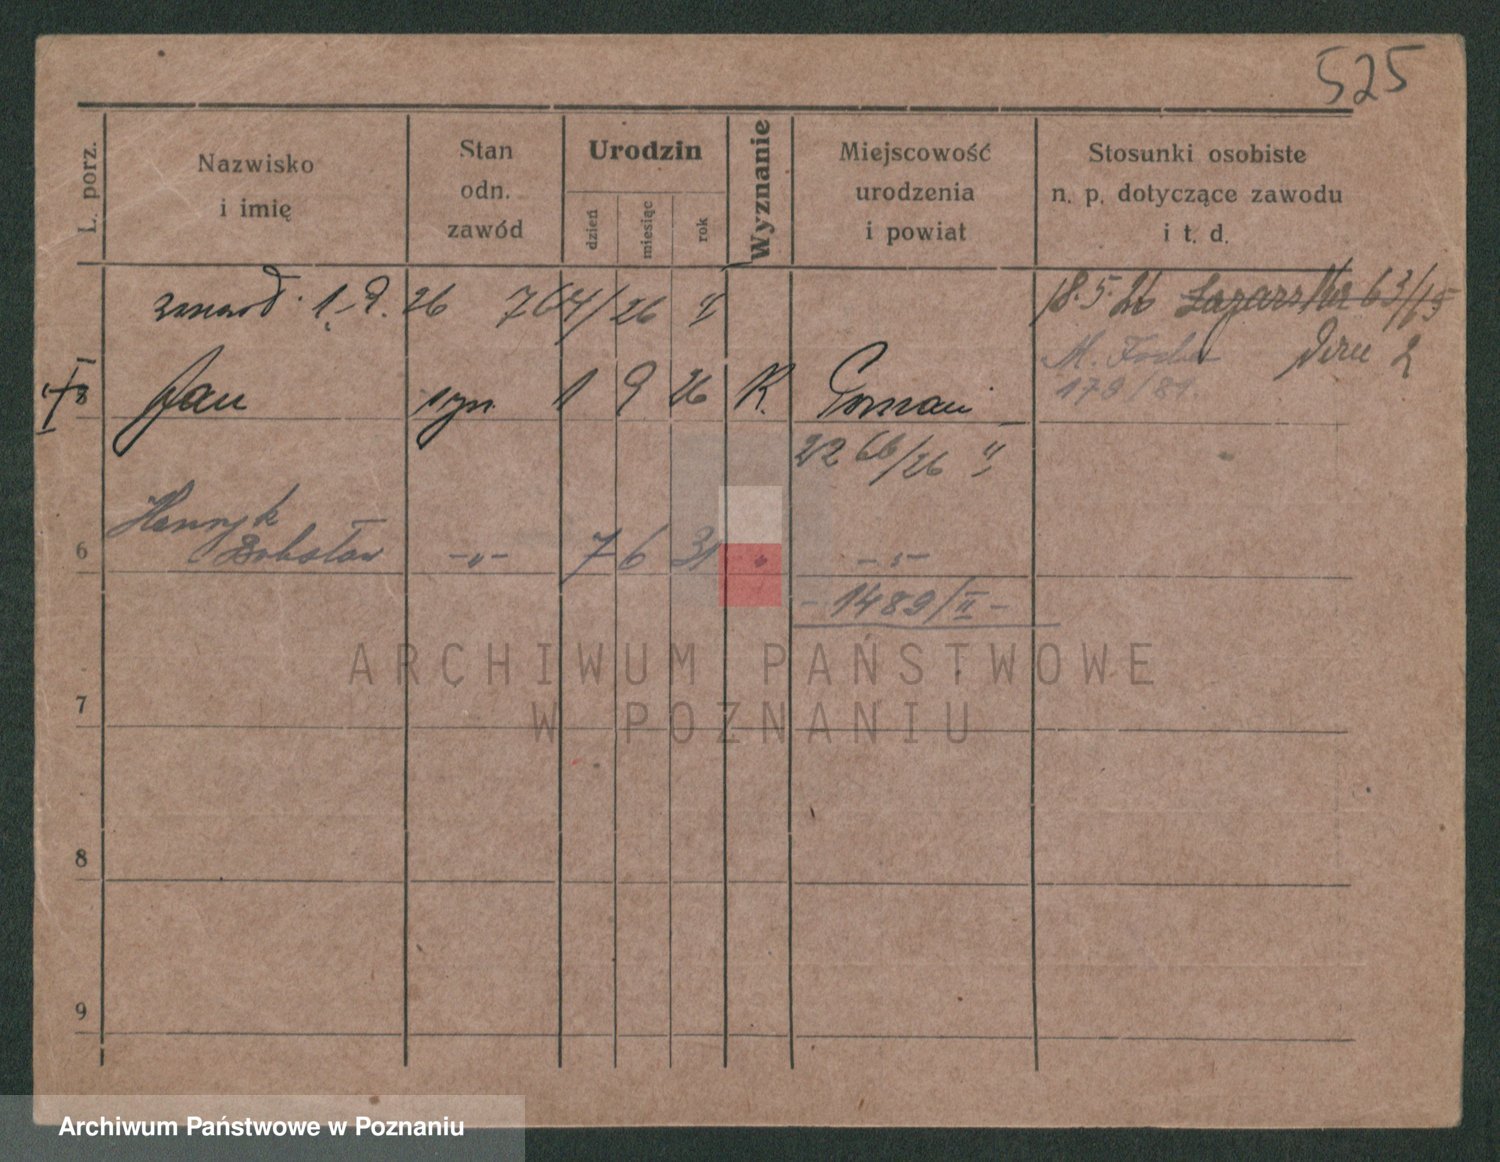 525
L. porz.
Nazwisko
i imię
Stan
odn.
zawód
Urodzin
dzień
miesiąc
rok
Wyznanie
Miejscowość
urodzenia
i powiat
Stosunki osobiste
n. p. dotyczące zawodu
i t. d.
1. 9. 26 764/26
18.5.26 Łazarska 63/15
179/81.
Jan syn 1 9 26 K. Poznań
2266/26 II
Henryk
6 Bohsław -„- 7 6 31 „ -„-
- 1489/II -
7
8
9
ARCHIWUM PAŃSTWOWE
W POZNANIU
Archiwum Państwowe w Poznaniu